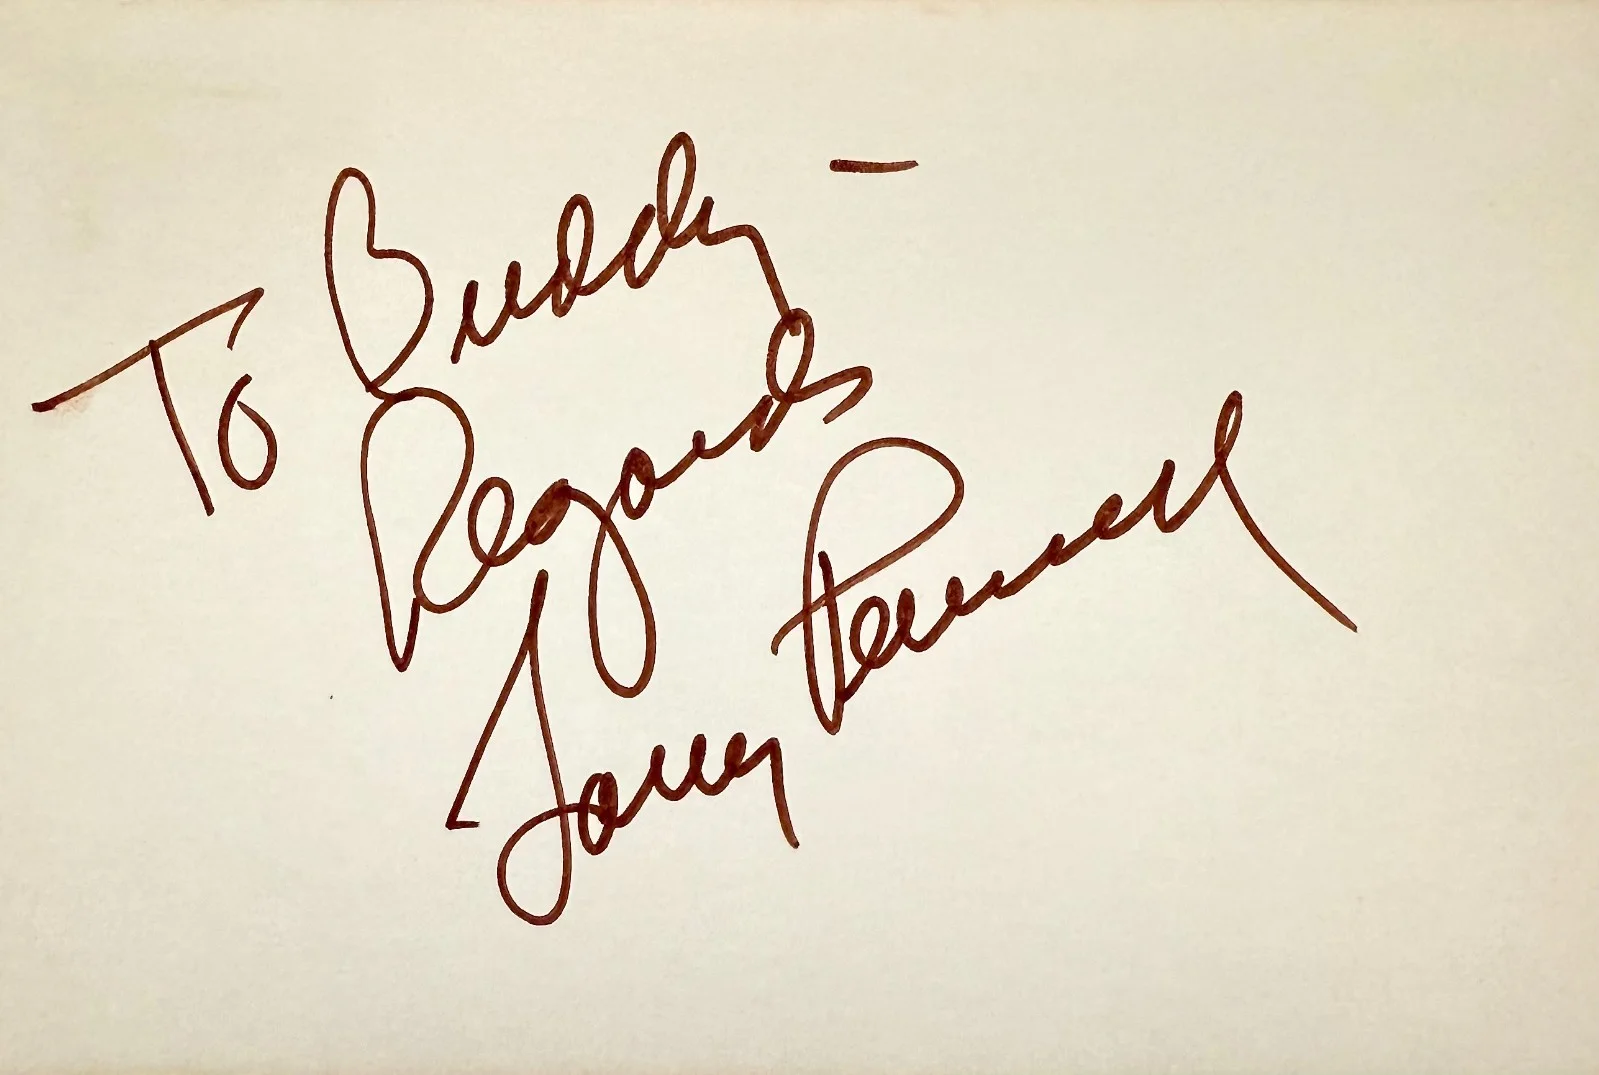 To Buddy –
Regards
Larry Pennell